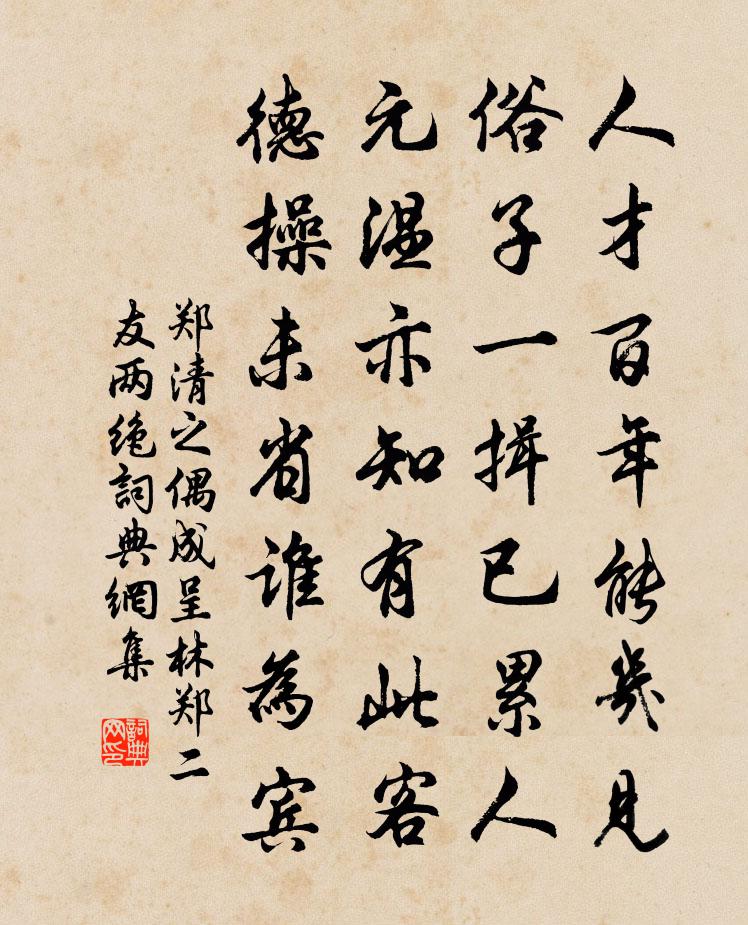 人才百年能幾見
俗子一揖已累人
元温亦知有此客
德操未省谁為宾
郑清之偶成呈林郑二
友两绝詞典網集
詞典
网印